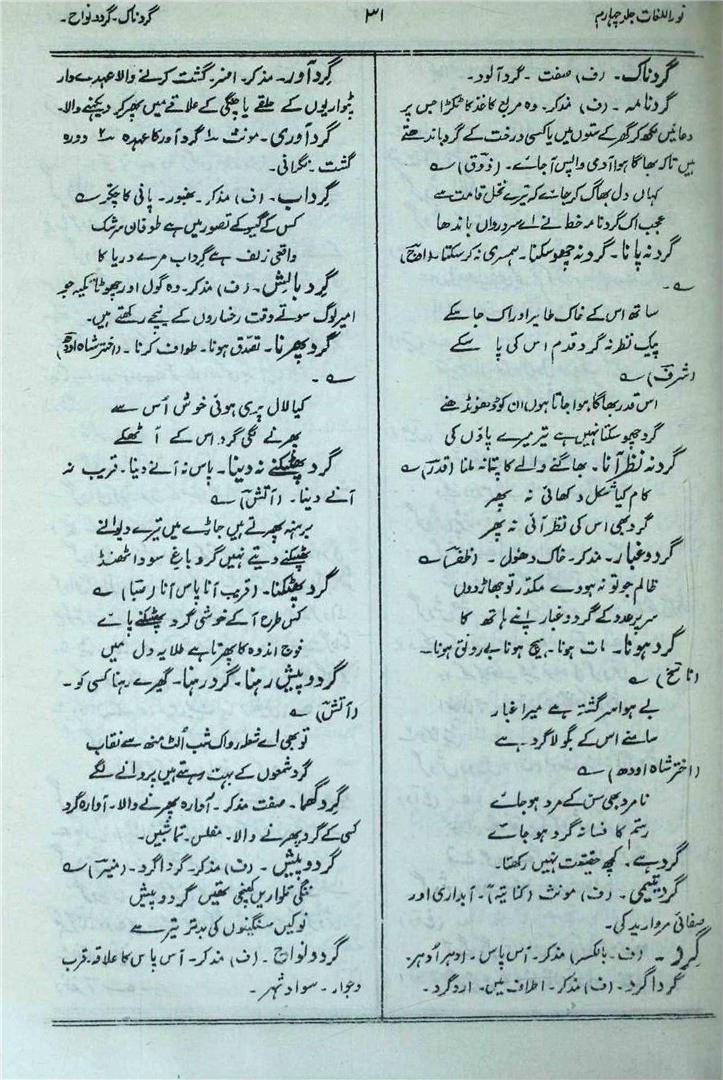 نور اللغات جلد چہارم
۳۱
گردناک۔ گردونواح۔
گردناک۔ (ف) صفت۔ گرد آلود۔
گردنامہ۔ (ف) مذکر۔ وہ مربع کاغذ کا ٹکڑا جس پر
دعائیں لکھ کر گھر کے ستون میں یا کسی درخت کے گرد باندھتے
ہیں تاکہ بھاگا ہوا آدمی واپس آجائے۔ (ذوق) ؎
کہاں دل بھاگ کر جائے کہ تیرے نخل قامت سے
عجب اک گردنامہ خط نے اے سرو رواں باندھا
گرد نہ پانا۔ گرد نہ چھو سکنا۔ ہمسری نہ کر سکنا۔ (اوج)
؎۔
ساتھ اس کے خاک طایر ادراک جا سکے
پیک نظر نہ گرد قدم اس کی پا سکے
(اشرف) ؎
اس قدر بھاگا ہوا جاتا ہوں ان کو ڈھونڈھنے
گرد چھو سکتا نہیں ہے تیر میرے پاؤں کی
گرد نہ نظر آنا۔ بھاگنے والے کا پتا نہ ملنا (قدر) ؎
کام کیا شکل دکھائی نہ پھر
گرد بھی اس کی نظر آئی نہ پھر
گرد و غبار۔ مذکر۔ خاک دھول۔ (ظفر) ؎
ظالم جو تو نہ ہووے مکدر تو جھاڑ دوں
سر پر عدو کے گرد و غبار اپنے ہاتھ کا
گرد ہونا۔ مات ہونا۔ ہیچ ہونا بے رونق ہونا۔
(ناسخ) ؎
بے ہوا سرگشتہ ہے میرا غبار
سامنے اس کے بگولا گرد ہے
(اختر شاہ اودھ) ؎
نامرد بھی سن کے مرد ہو جائے
رستم کا فسانہ گرد ہو جائے
گرد ہے۔ کچھ حقیقت نہیں رکھتا۔
گرد یتیمی۔ (ف) مونث (کنایتہً)۔ آبداری اور
صفائی مروارید کی۔
گِرد۔ (ف۔ بالکسر) مذکر۔ آس پاس۔ ادہر اُدہر۔
گرداگرد۔ (ف) مذکر۔ اطراف میں۔ ارد گرد۔
گِرد آور۔ مذکر۔ افسر۔ گشت کرنے والا عہدے دار
پٹواریوں کے حلقے یا چنگی کے علاقے میں پھر کر دیکھنے والا۔
گرد آوری۔ مونث ۱؎ گرد آور کا عہدہ ۲؎ دورہ
گشت۔ نگرانی۔
گِرداب۔ (ف) مذکر۔ بھنور۔ پانی کا چکر ؎
کس کے گیسو کے تصور میں ہے طوفان سرشک
واقعی زلف ہے گرداب مرے دریا کا
گِرد بالِش۔ (ف) مذکر۔ وہ گول اور چھوٹا تکیہ جو
امیر لوگ سوتے وقت رخساروں کے نیچے رکھتے ہیں۔
گرد پھرنا۔ تصدق ہونا۔ طواف کرنا۔ (اختر شاہ اودھ)
؎۔
کیا لال پری ہوئی خوش اُس سے
پھرنے لگی گرد اس کے اٹھکے
گرد پھٹکنے نہ دینا۔ پاس نہ آنے دینا۔ قریب نہ
آنے دینا۔ (آتش) ؎
برہنہ پھرتے ہیں جاڑے میں تیرے دیوانے
پھٹکنے دیتے نہیں گرد باغ سودا ٹھنڈ
گرد پھٹکنا۔ (قریب آنا پاس آنا رصبا) ؎
کس طرح آ کے خوشی گرد پھٹکنے پائے
فوج اندوہ کا پھرتا ہے طلایہ دل میں
گرد و پیش رہنا۔ گرد رہنا۔ گھیرے رہنا کسی کو۔
(آتش) ؎
تو بھی اے شعلہ رو اک شب اُلٹ منھ سے نقاب
گرد شمعوں کے بہت رہتے ہیں پروانے لگے
گرد گھما۔ صفت مذکر۔ آوارہ پھرنے والا۔ آوارہ گرد
کسی کے گرد پھرنے والا۔ مفلس۔ تماش بیں۔
گرد و پیش۔ (ف) مذکر۔ گرداگرد۔ (منیر) ؎
ننگی تلواریں کھنچی تھیں گرد و پیش
نوکیں سنگینوں کی بدتر تیر سے
گرد و نواح۔ (ف) مذکر۔ آس پاس کا علاقہ۔ قرب
و جوار۔ سواد شہر۔